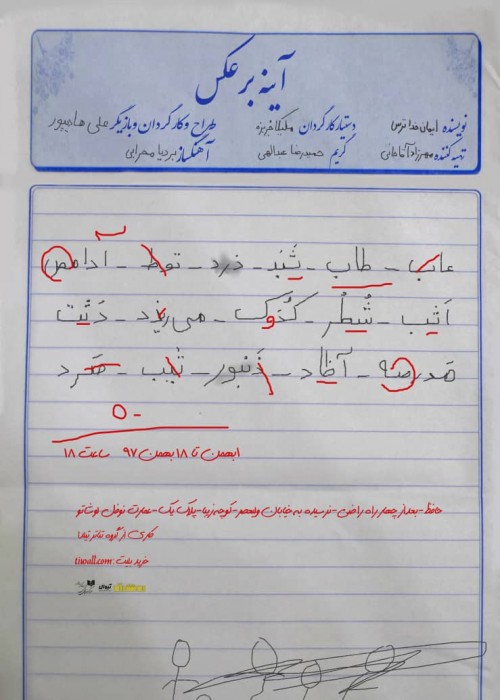 آینه برعکس
نویسنده ایمان خداترس دستیار کارگردان ملیکا طراح و کارگردان و بازیگر علی هاجیپور
تهیه کننده مهرزاد آقاخانی گریم حمیدرضا عبدالهی آهنگساز بردیا محرابی
عاب - طاب - ثَبد - ذرد - توط - آدامص
اَثیب - شُطُر - کُدوک - می‌ریزد - دَثت
مَدرصه - آظاد - ذَنبور - ثیب - مَرد
۵۰
۱بهمن تا ۱۸بهمن ۹۷ ساعت ۱۸
حافظ - بعد از چهارراه راضی - نرسیده به خیابان ولیعصر - کوچه زیبا - پلاک یک - عمارت نوفل لوشاتو
کاری از گروه تئاتر تیلدا
خرید بلیت tiwall.com
تیوال